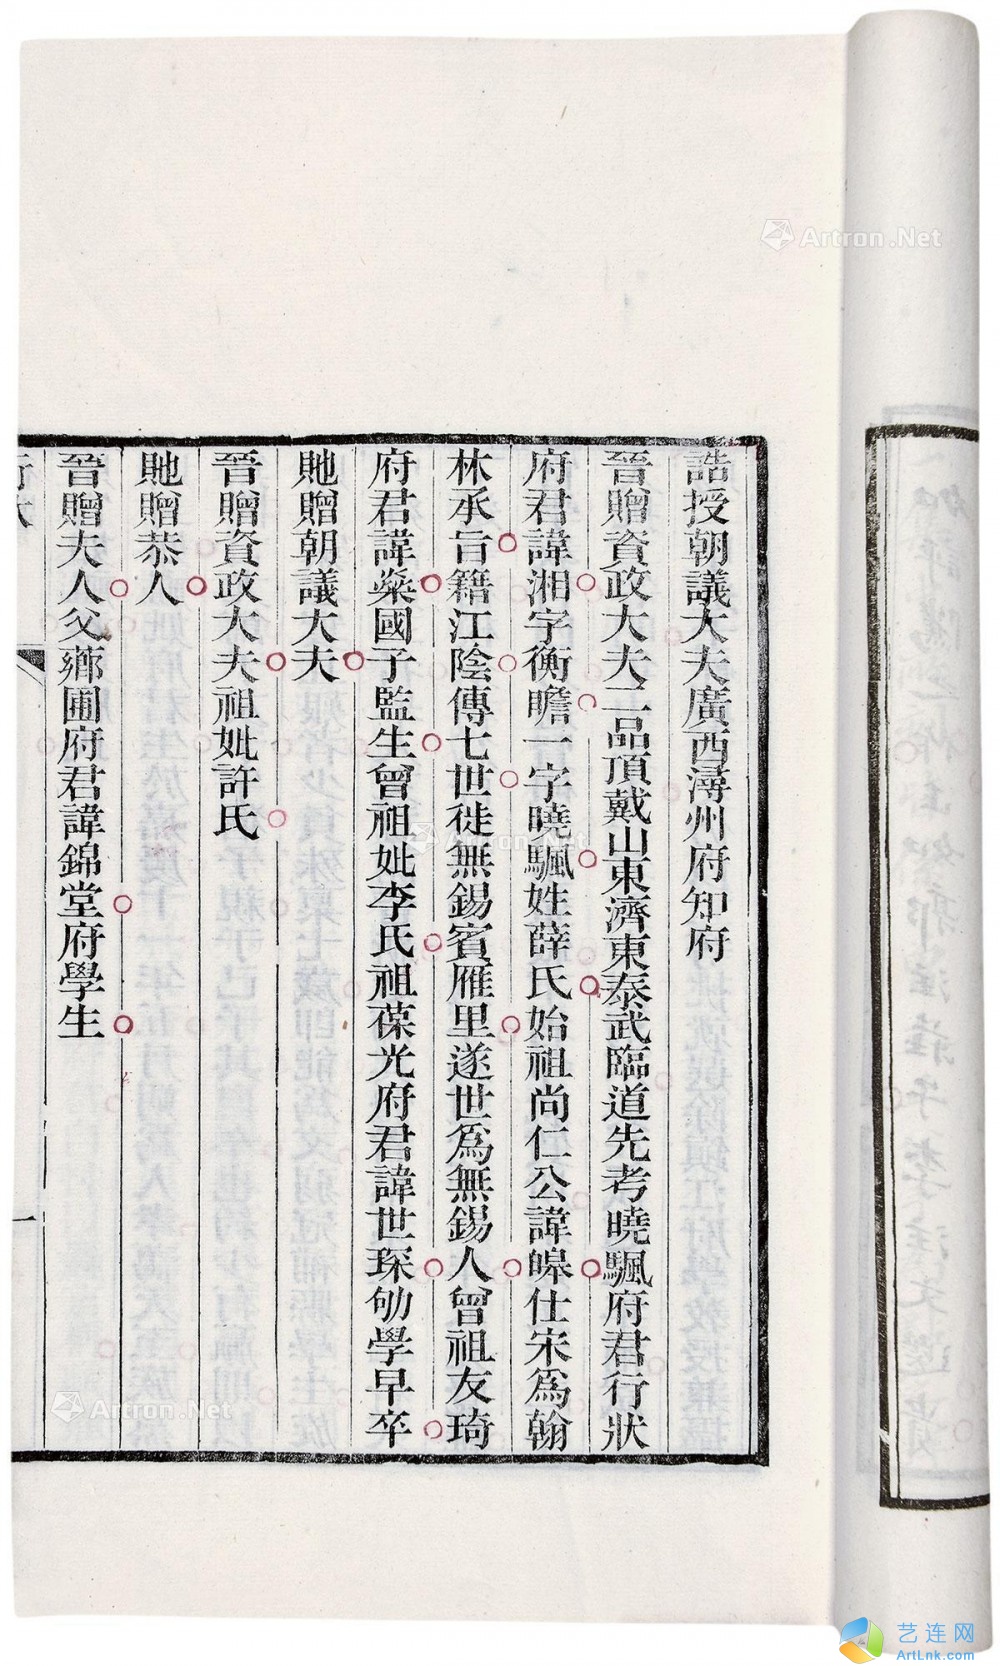 誥授朝議大夫廣西潯州府知府
晉贈資政大夫二品頂戴山東濟東泰武臨道先考曉颿府君行狀
府君諱湘字衡瞻一字曉颿姓薛氏始祖尚仁公諱皞仕宋爲翰
林承旨籍江陰傳七世徙無錫賓雁里遂世爲無錫人曾祖友琦
府君諱燊國子監生曾祖妣李氏祖葆光府君諱世琛幼學早卒
貤贈朝議大夫
晉贈資政大夫祖妣許氏
貤贈恭人
晉贈夫人父薌圃府君諱錦堂府學生
行狀
一
Artron.Net
Artron.Net
Artron.Net
艺连网
ArtLnk.com